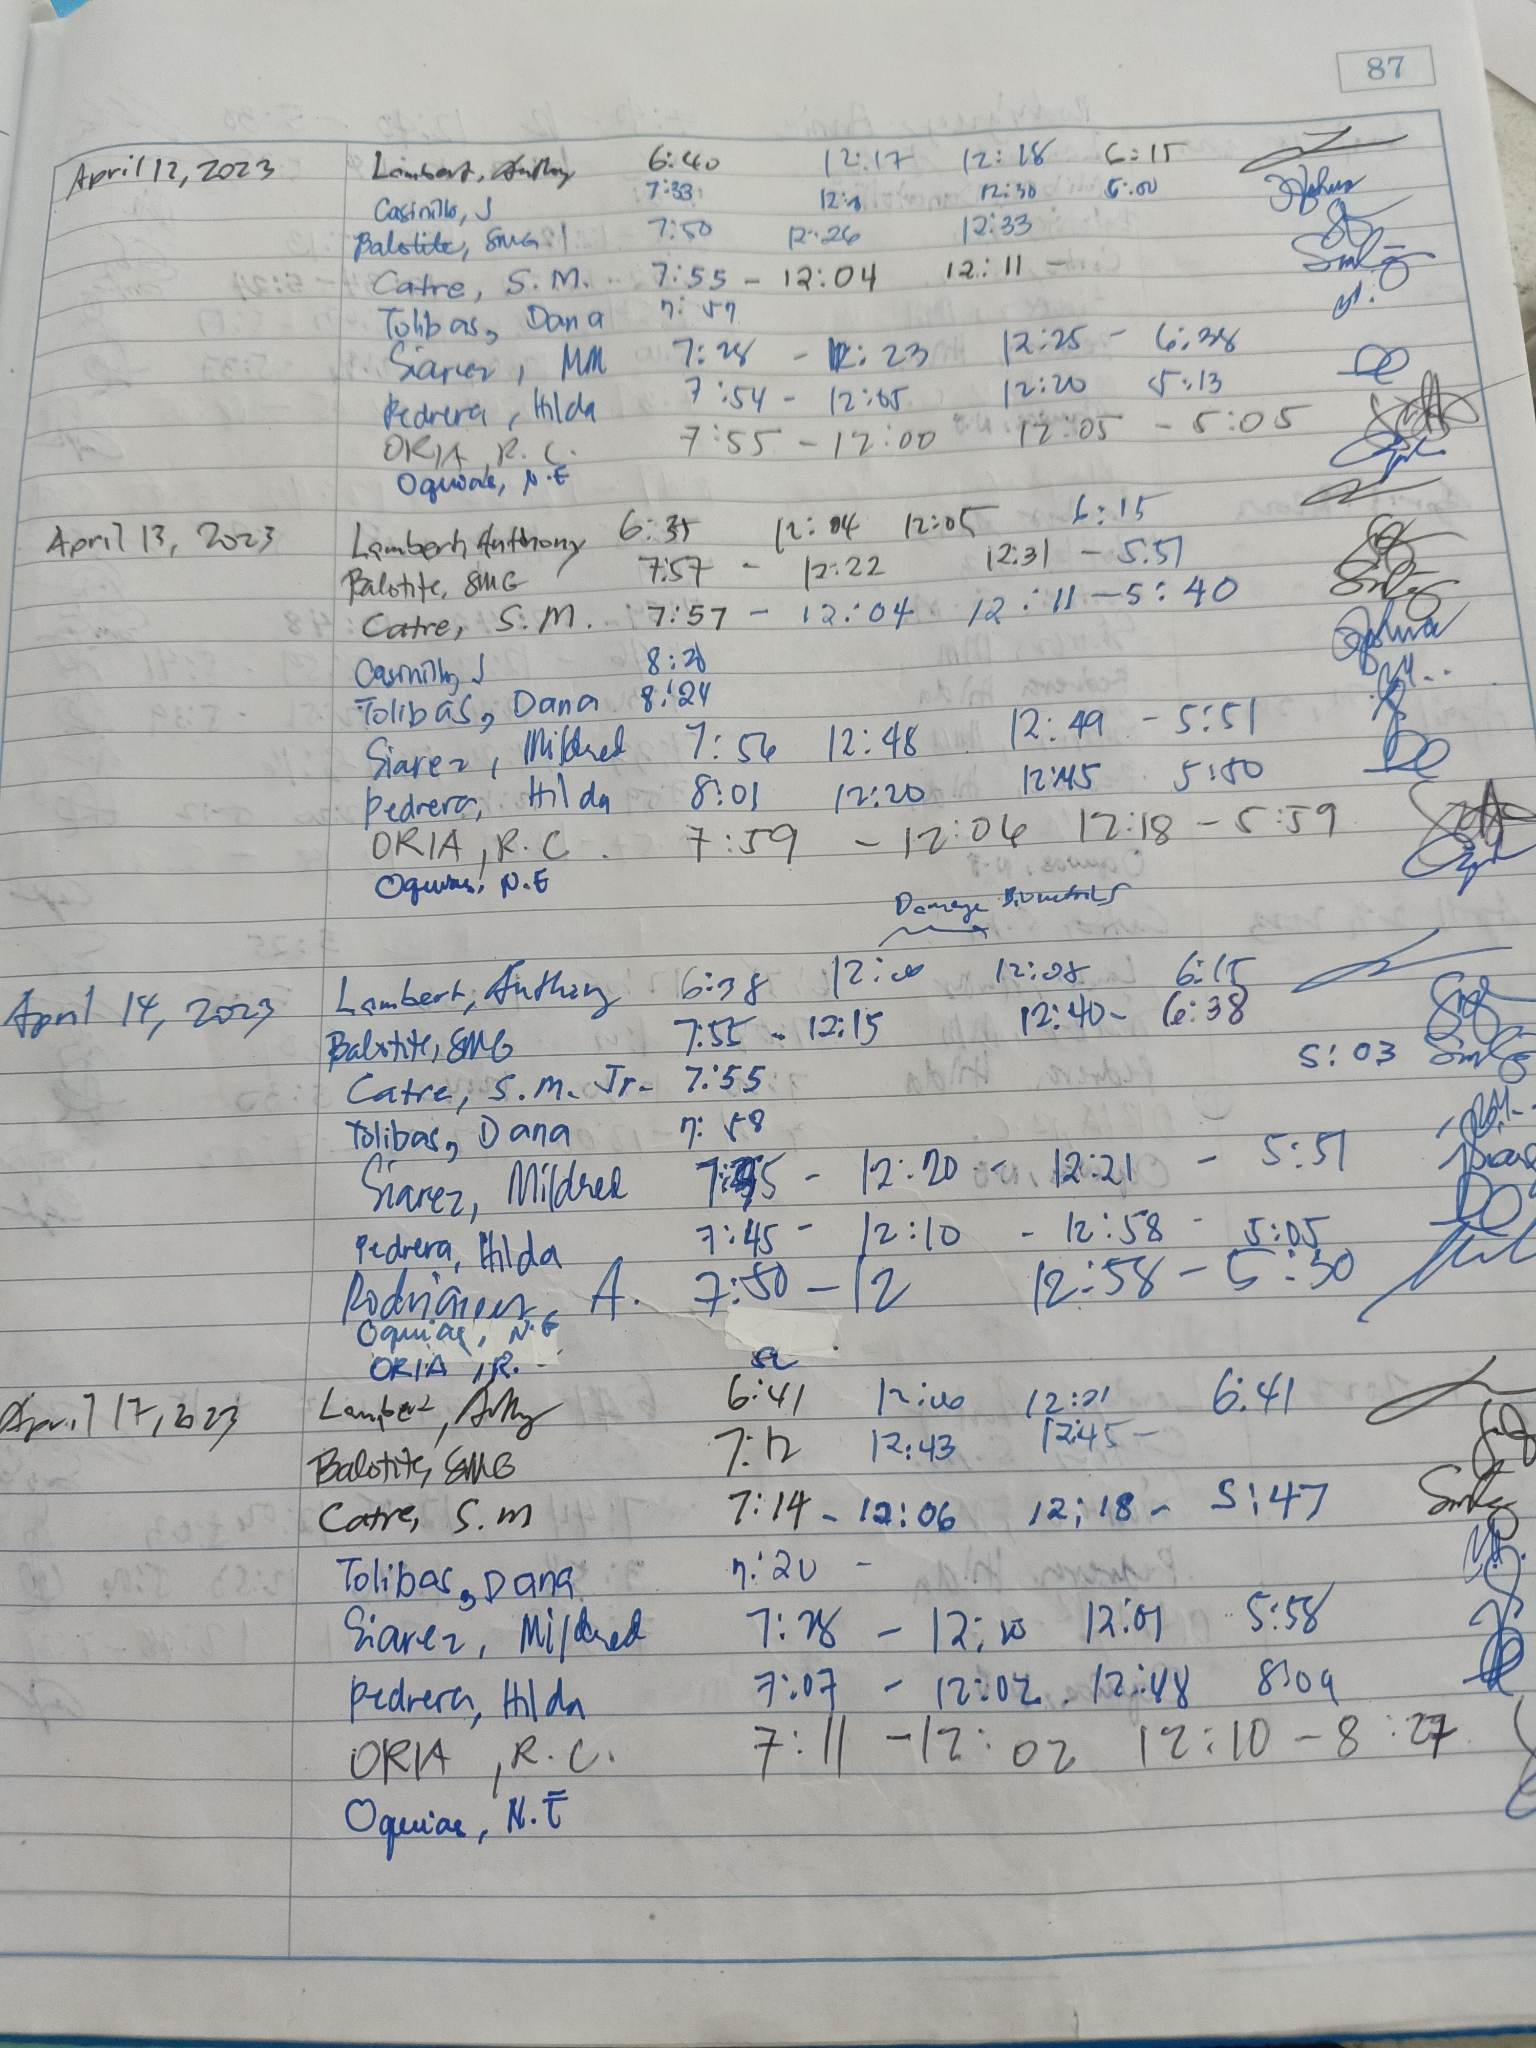 87
April 12, 2023 Lambert, Anthony 6:40 12:17 12:18 6:15
Casinillo, J 7:33 12:30 5:00
Balotite, SMG 7:50 12:26 12:33
Catre, S.M. 7:55 - 12:04 12:11 -
Tolibas, Dana 7:57
Siarez, MM 7:28 - 12:23 12:25 - 6:38
Pedrera, Hilda 7:54 - 12:05 12:20 5:13
ORIA, R.C. 7:55 - 12:00 12:05 - 5:05
Oquias, N.E
April 13, 2023 Lambert, Anthony 6:35 12:04 12:05 6:15
Balotite, SMG 7:57 - 12:22 12:31 - 5:51
Catre, S.M. 7:57 - 12:04 12:11 - 5:40
Casinillo, J
Tolibas, Dana 8:24
Siarez, Mildred 7:56 12:48 12:49 - 5:51
Pedrera, Hilda 8:01 12:20 12:45 5:50
ORIA, R.C. 7:59 - 12:06 12:18 - 5:59
Oquias, N.E
Damage Biometrics
April 14, 2023 Lambert, Anthony 6:38 12:00 12:08 6:15
Balotite, SMG 7:55 - 12:15 12:40 - 6:38
Catre, S.M. Jr. 7:55 5:03
Tolibas, Dana 7:58
Siarez, Mildred - 12:20 - 12:21 - 5:51
Pedrera, Hilda 7:45 - 12:10 - 12:58 - 5:05
Rodriguez, A. 7:50 - 12 12:58 - 5:30
Oquias, N.E
ORIA, R.
April 17, 2023 Lambert, Anthony 6:41 12:00 12:01 6:41
Balotite, SMG 7:12 12:43 12:45 -
Catre, S.M 7:14 - 12:06 12:18 - 5:47
Tolibas, Dana 7:20 -
Siarez, Mildred 7:28 - 12:00 12:01 5:58
Pedrera, Hilda 7:07 - 12:02 12:48 8:09
ORIA, R.C. 7:11 - 12:02 12:10 - 8:27
Oquias, N.E